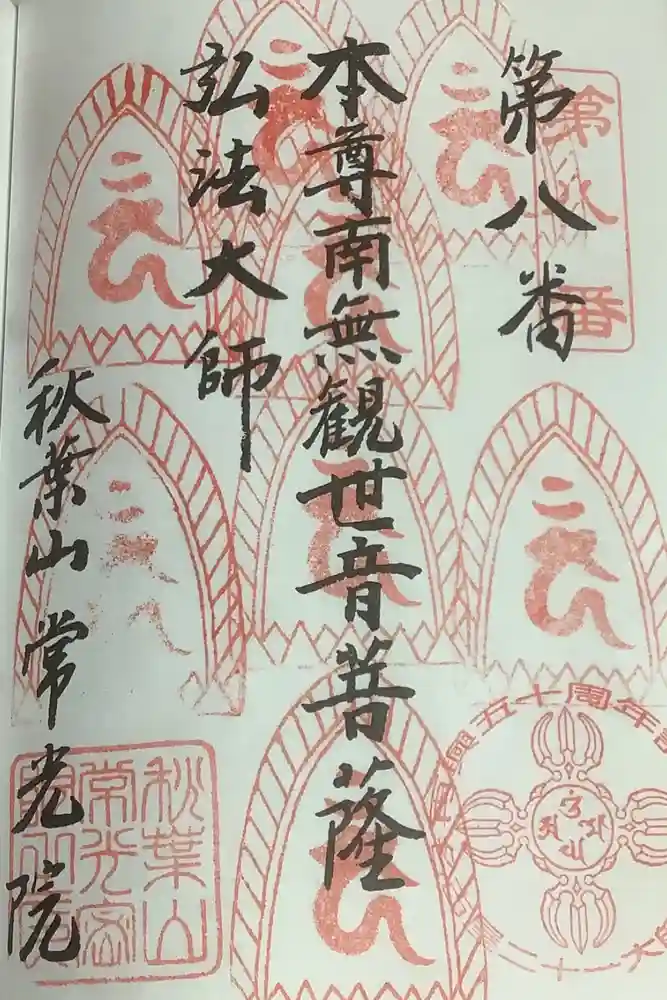 第八番
本尊南無観世音菩薩
弘法大師
秋葉山常光院
第八番
五十周年
秋葉山
常光密